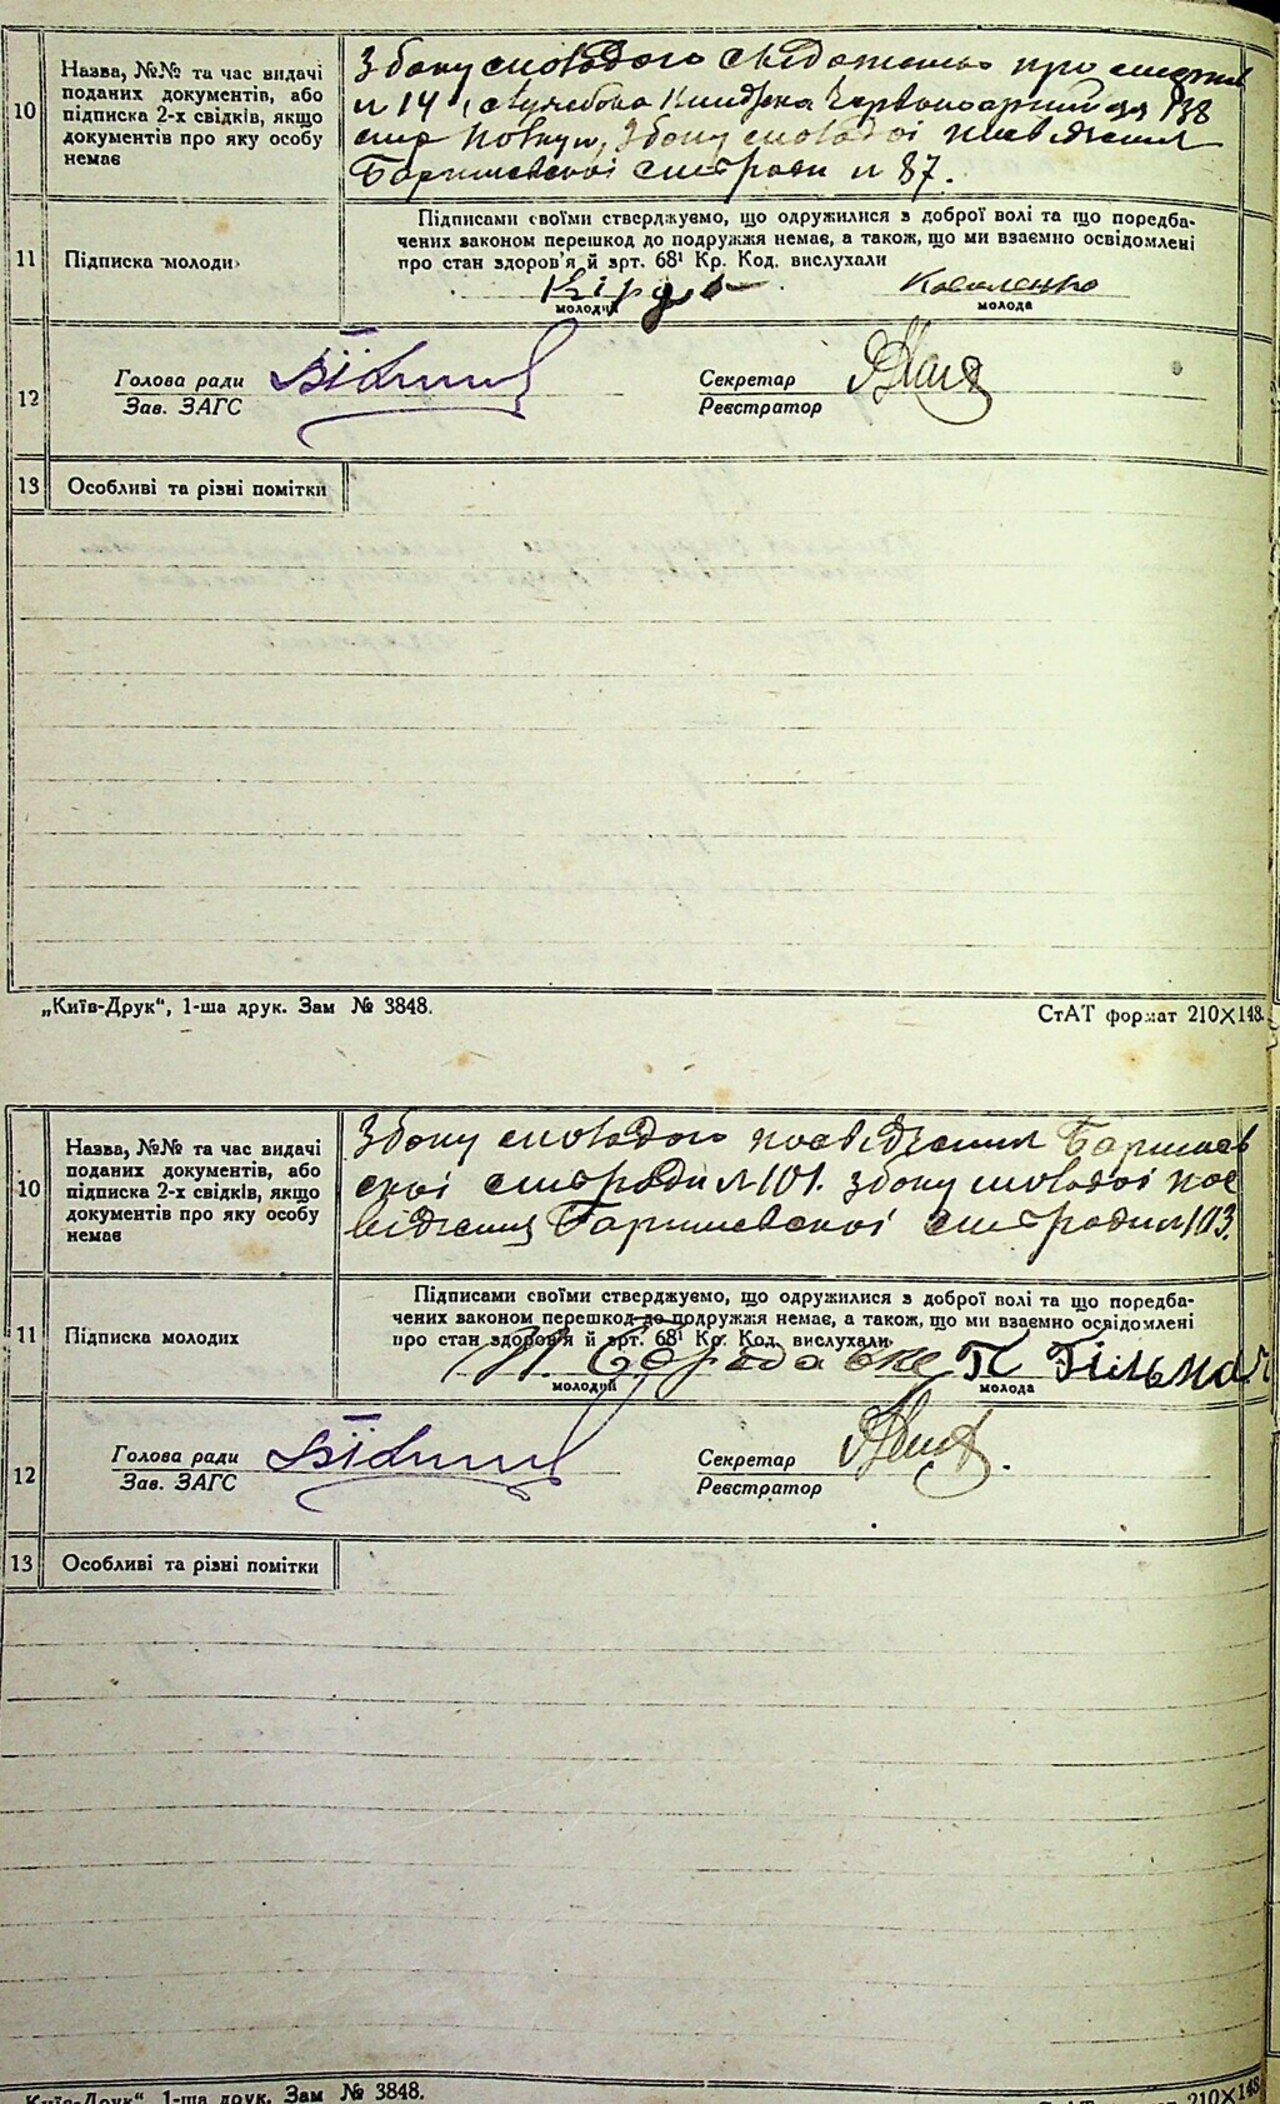 10
Назва, №№ та час видачі
поданих документів, або
підписка 2-х свідків, якщо
документів про яку особу
немає
Збоку молодого свідоцтво про смерть
н 14, служебова книжка Червоноармійця 138
стр полку, Збоку молодої посвідчення
Баришевської сільради н 87.
11
Підписка молоди
Підписами своїми стверджуємо, що одружилися з доброї волі та що поредба-
чених законом перешкод до подружжя немає, а також, що ми взаємно освідомлені
про стан здоров'я й зрт. 68¹ Кр. Код. вислухали
Кірда Коваленко
молодий молода
12
Голова ради Секретар
Зав. ЗАГС Реєстратор
13
Особливі та різні помітки
„Київ-Друк“, 1-ша друк. Зам № 3848. СтАТ формат 210×148.
10
Назва, №№ та час видачі
поданих документів, або
підписка 2-х свідків, якщо
документів про яку особу
немає
Збоку молодого посвідчення Баришев
ської сільради н 101. Збоку молодої пос
відчення Баришевської сільради н 103.
11
Підписка молодих
Підписами своїми стверджуємо, що одружилися з доброї волі та що поредба-
чених законом перешкод до подружжя немає, а також, що ми взаємно освідомлені
про стан здоров'я й зрт. 68¹ Кр. Код. вислухали
П Гільман
молодий молода
12
Голова ради Секретар
Зав. ЗАГС Реєстратор
13
Особливі та різні помітки
Київ-Друк“, 1-ша друк. Зам № 3848. СтАТ 210×148